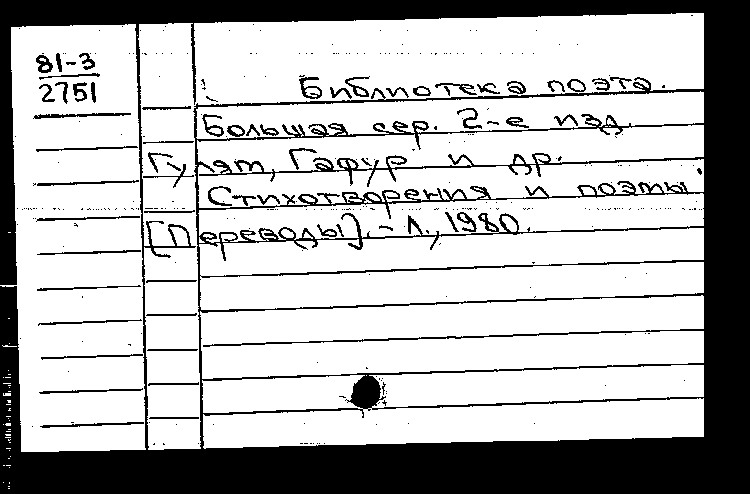 81-3
2751
Библиотека поэта.
Большая сер. 2-е изд.
Гулям, Гафур и др.
Стихотворения и поэмы.
[Переводы]. - Л., 1980.